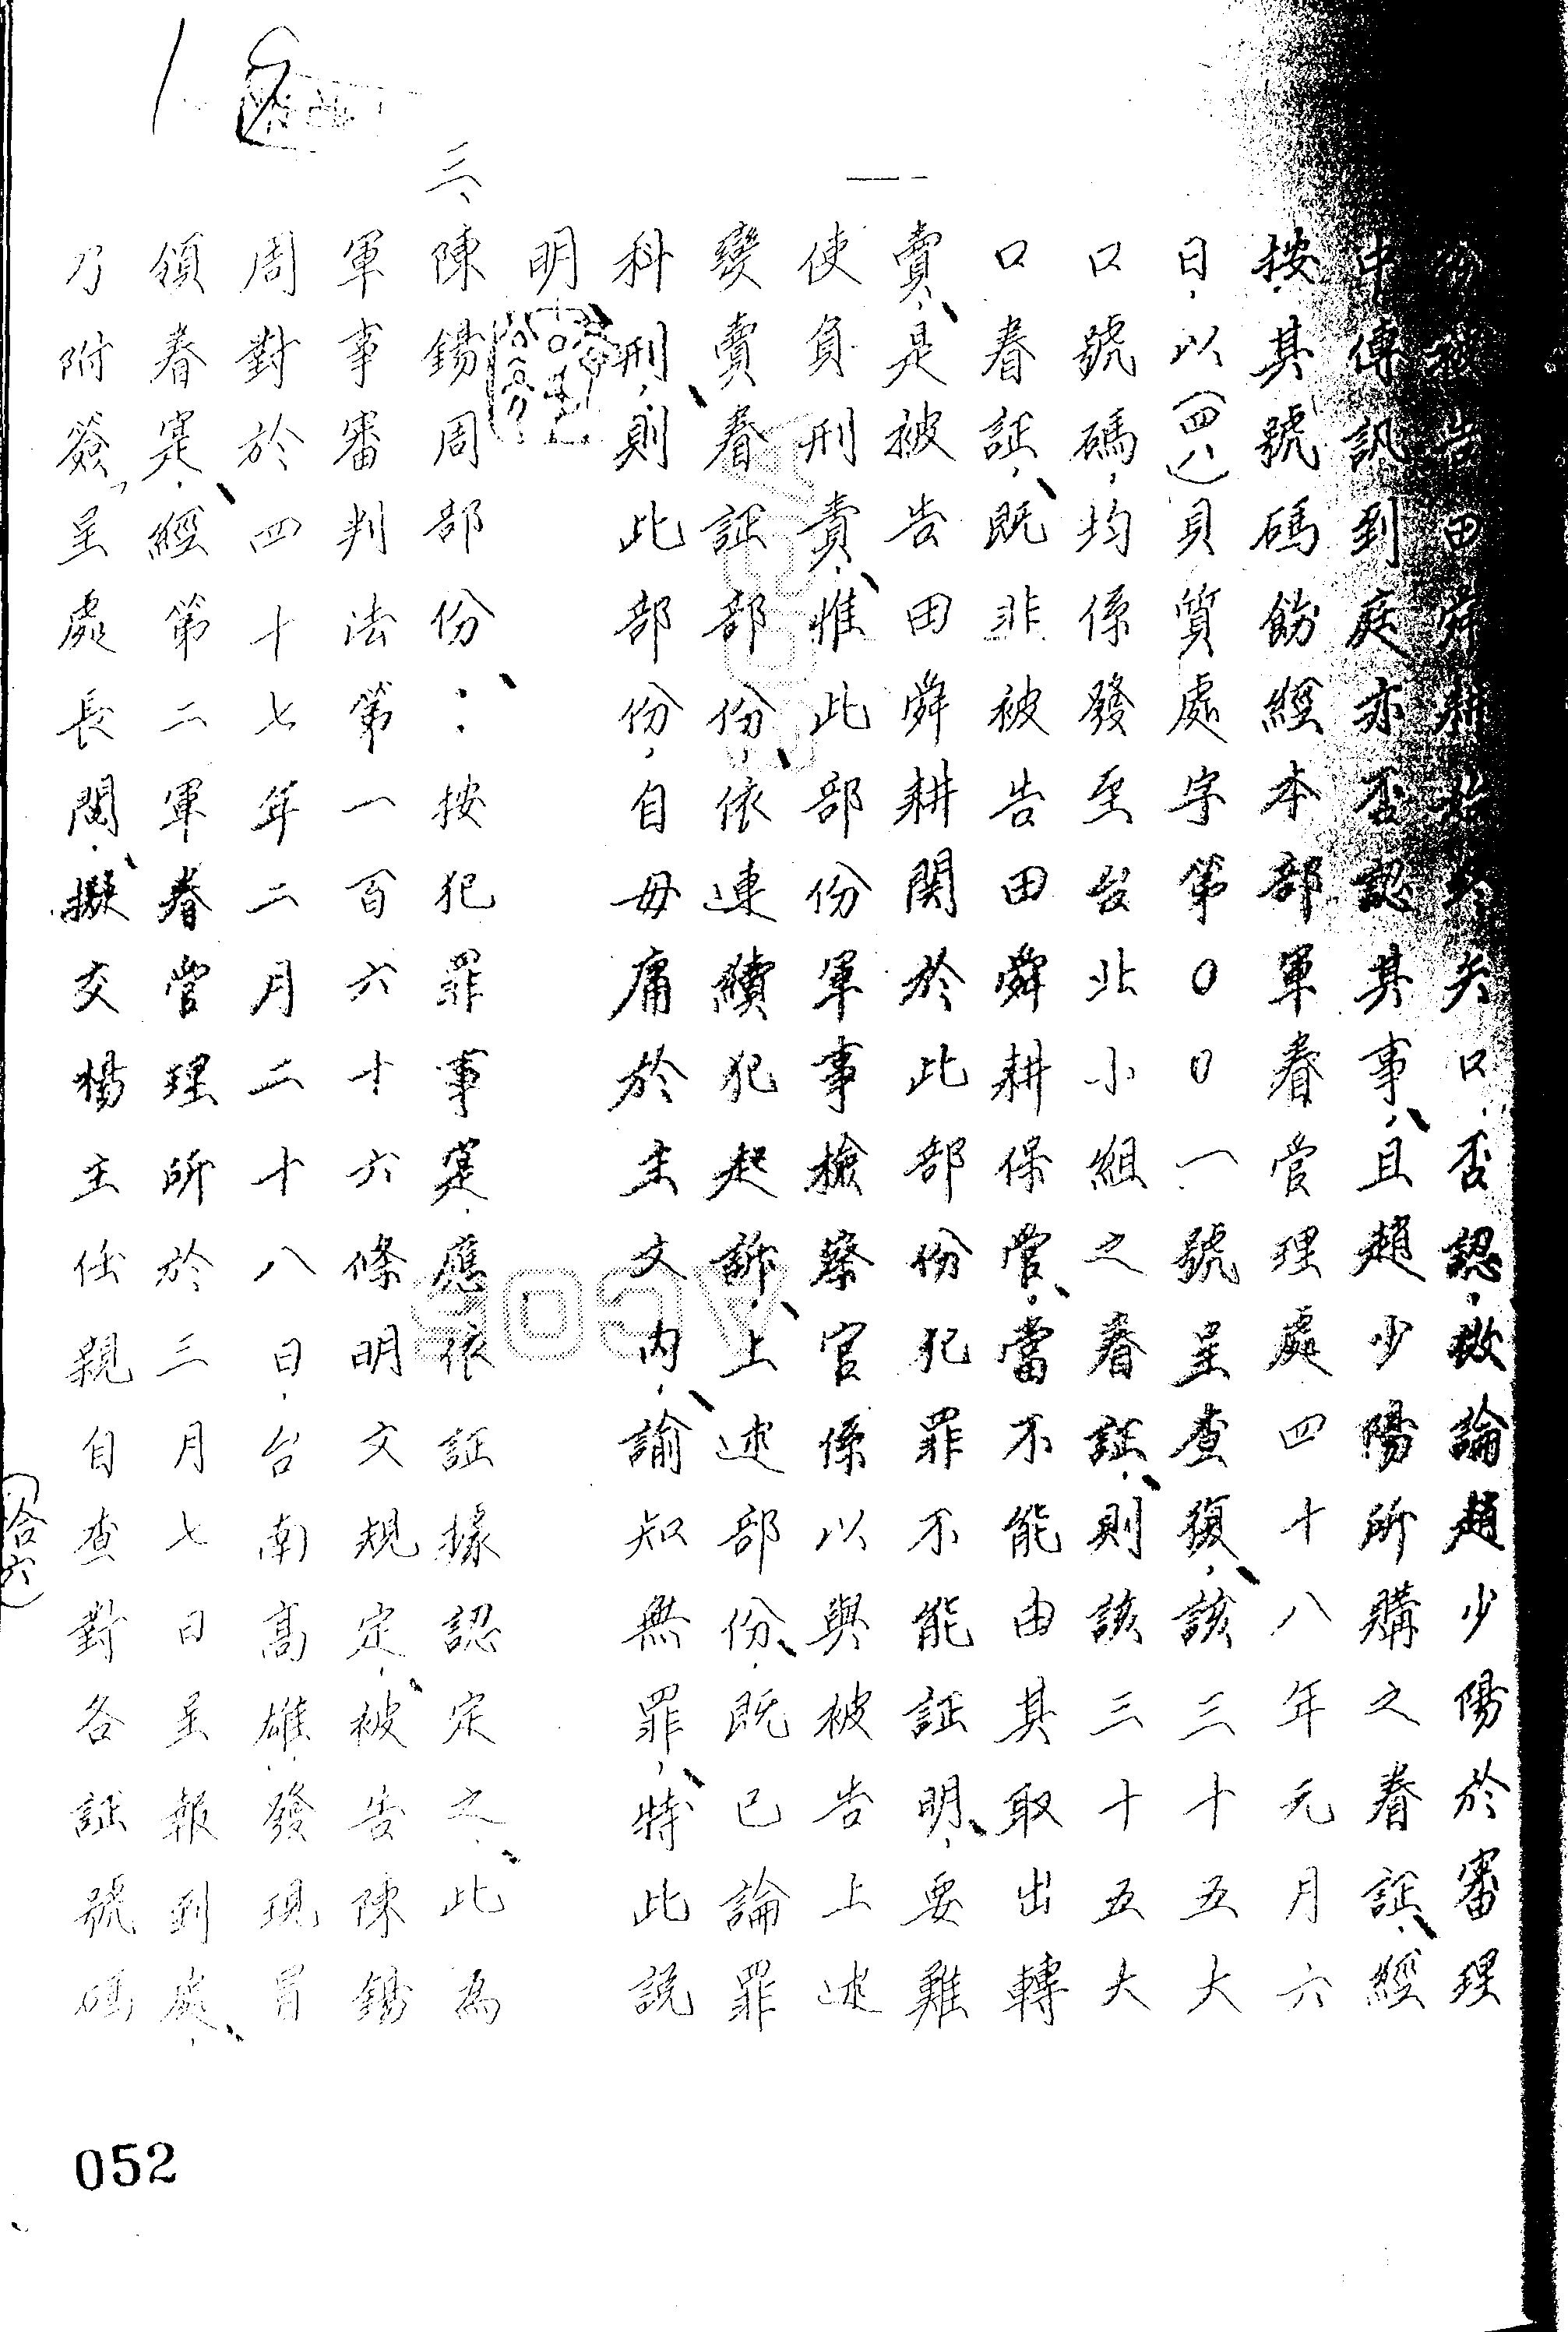 被告田舜耕矢口否認，教論趙少陽於審理
中傳訊到庭亦否認其事，且趙少陽所購之眷証，經
按其號碼飭經本部軍眷管理處四十八年元月六
日，以(四八)貝質處字第００一號呈查復，該三十五大
口號碼，均係發至台北小組之眷証，則該三十五大
口眷証，既非被告田舜耕保管，當不能由其取出轉
賣，是被告田舜耕関於此部份犯罪不能証明，要難
使負刑責，惟此部份軍事檢察官係以與被告上述
變賣眷証部份，依連續犯起訴，上述部份，既已論罪
科刑，則此部份，自毋庸於主文內，諭知無罪，特此説
明
三、陳錫周部份：按犯罪事寔，應依証據認定之，此為
軍事審判法第一百六十六條明文規定，被告陳錫
周對於四十七年二月二十八日，台南高雄，發現冒
領眷寔，經第二軍眷管理所於三月七日呈報到處，
乃附簽呈處長閱，擬交楊主任親自查對各証號碼
(合六)
052